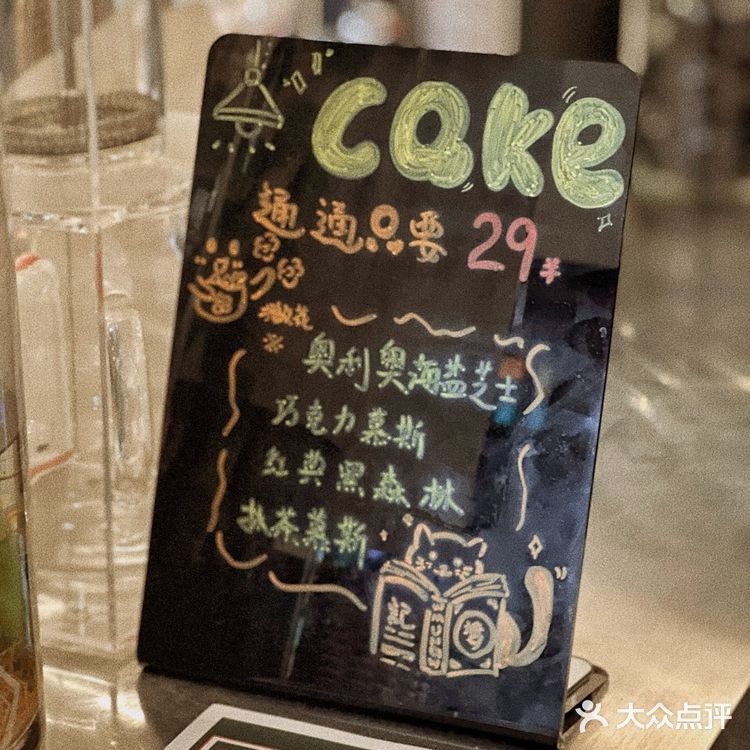 cake
通通只要29¥
撒花
奥利奥海盐芝士
巧克力慕斯
红典黑森林
抹茶慕斯
大众点评